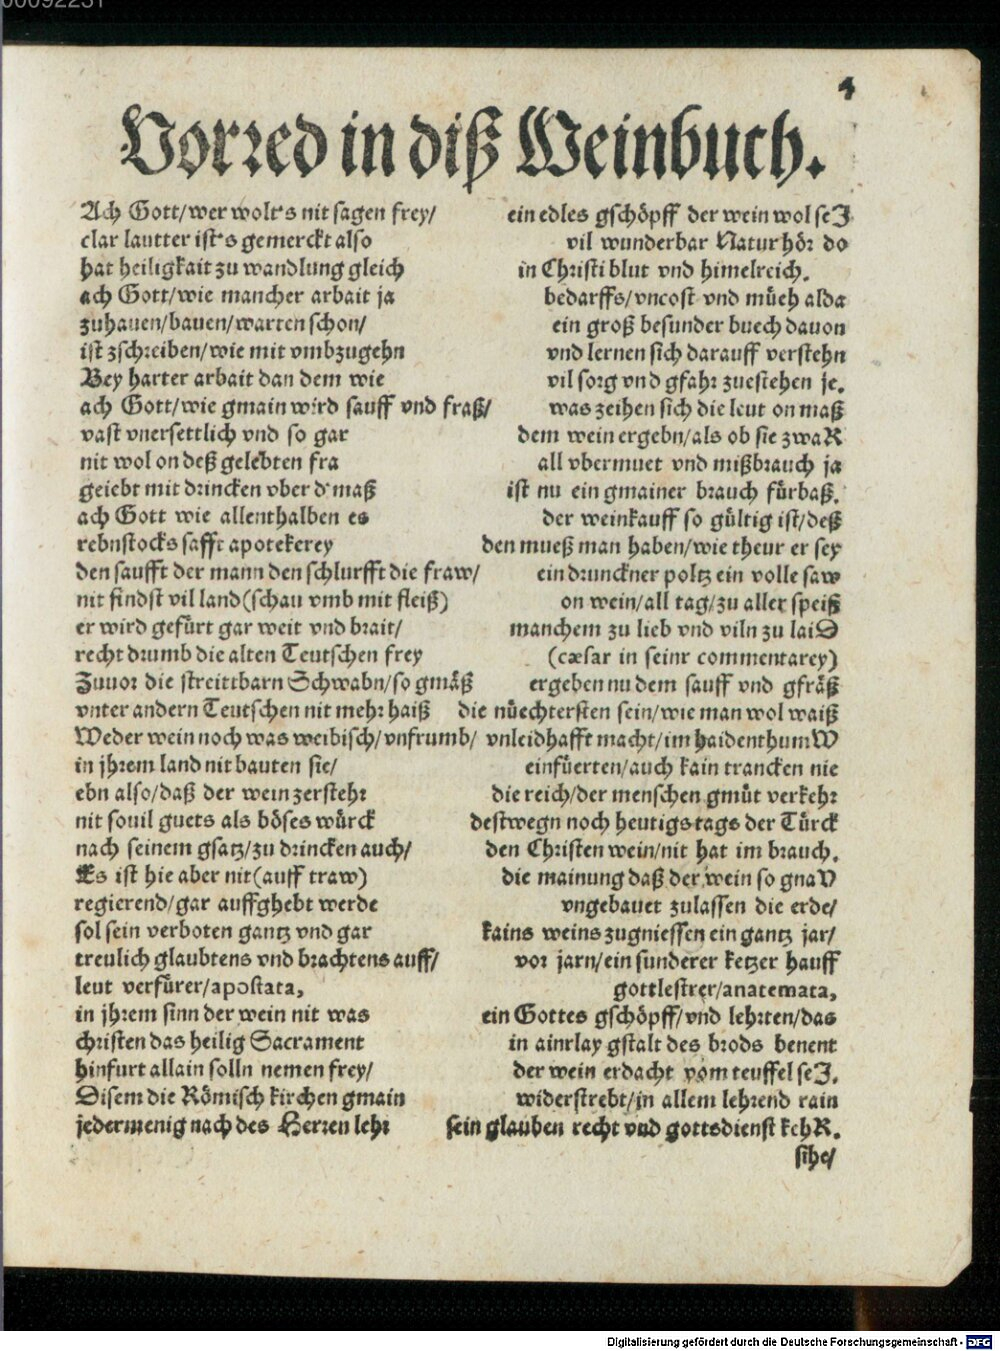 00092251
4
Vorred in diß Weinbuch.
Ach Gott/wer wolt's nit sagen frey/ ein edles gschöpff der wein wol seJ
clar lautter ist's gemerckt also vil wunderbar Natur hör do
hat heiligkait zu wandlung gleich in Christi blut vnd himelreich.
ach Gott/wie mancher arbait ja bedarffs/vncost vnd müeh alda
zuhauen/bauen/warten schon/ ein groß besunder buech dauon
ist zschreiben/wie mit vmbzugehn vnd lernen sich darauff verstehn
Bey harter arbait dan dem wie vil sorg vnd gfahr zuestehen je.
ach Gott/wie gmain wird sauff vnd fraß/ was zeihen sich die leut on maß
vast vnersettlich vnd so gar dem wein ergebn/als ob sie zwaR
nit wol on deß gelebten fra all vbermuet vnd mißbrauch ja
geiebt mit drincken vber d'maß ist nu ein gmainer brauch fürbaß.
ach Gott wie allenthalben es der weinkauff so gültig ist/deß
rebnstocks safft apotekerey den mueß man haben/wie theur er sey
den saufft der mann den schlurfft die fraw/ ein drunckner poltz ein volle saw
nit findst vil land(schau vmb mit fleiß) on wein/all tag/zu aller speiß
er wird gefürt gar weit vnd brait/ manchem zu lieb vnd viln zu laiD
recht drumb die alten Teutschen frey (cæsar in seinr commentarey)
Zuuor die streittbarn Schwabn/so gmäß ergeben nu dem sauff vnd gfräß
vnter andern Teutschen nit mehr haiß die nüechtersten sein/wie man wol waiß
Weder wein noch was weibisch/vnfrumb/ vnleidhafft macht/im haidenthumW
in jhrem land nit bauten sie/ einfüerten/auch kain trancken nie
ebn also/daß der wein zerstehr die reich/der menschen gmüt verkehr
nit souil guets als böses würck destwegn noch heutigs tags der Türck
nach seinem gsatz/zu drincken auch/ den Christen wein/nit hat im brauch.
Es ist hie aber nit(auff traw) die mainung daß der wein so gnaV
regierend/gar auffghebt werde vngebauet zulassen die erde/
sol sein verboten gantz vnd gar kains weins zugniessen ein gantz jar/
treulich glaubtens vnd brachtens auff/ vor jarn/ein sunderer ketzer hauff
leut verfürer/apostata, gottlestrer/anatemata,
in jhrem sinn der wein nit was ein Gottes gschöpff/vnd lehrten/das
christen das heilig Sacrament in ainrlay gstalt des brods benent
hinfurt allain solln nemen frey/ der wein erdacht vom teuffel seJ.
Disem die Römisch kirchen gmain widerstrebt/in allem lehrend rain
jedermenig nach des Herren lehr sein glauben recht vnd gottsdienst kehR.
sihe/
Digitalisierung gefördert durch die Deutsche Forschungsgemeinschaft - DFG